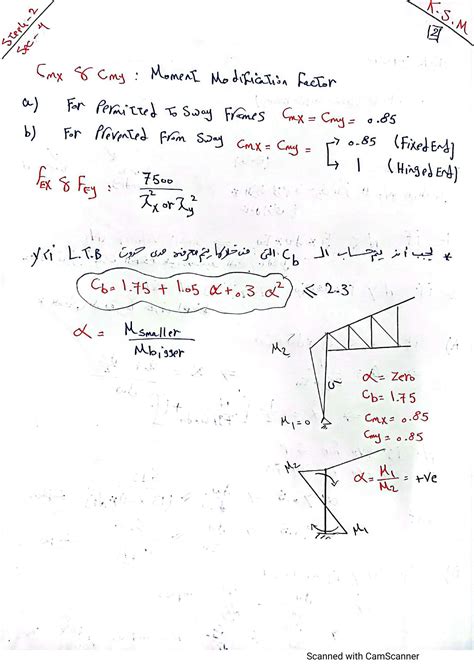 Steel-2
Sec-4
K.S.M
2
Cmx & Cmy : Moment Modification Factor
a) For Permitted To Sway Frames Cmx = Cmy = 0.85
b) For Prevented From Sway Cmx = Cmy = 0.85 (Fixed End)
1 (Hinged End)
FEX & FEy : 7500 / λ²x or λ²y
* يجب أن يتم حساب الـ Cb التي من خلالها يتم معرفة مدى حدوث L.T.B
Cb = 1.75 + 1.05 α + 0.3 α² ≤ 2.3
α = Msmaller / Mbigger
M2
M1 = 0
α = Zero
Cb = 1.75
Cmx = 0.85
Cmy = 0.85
M2
α = M1 / M2 = +ve
M1
Scanned with CamScanner